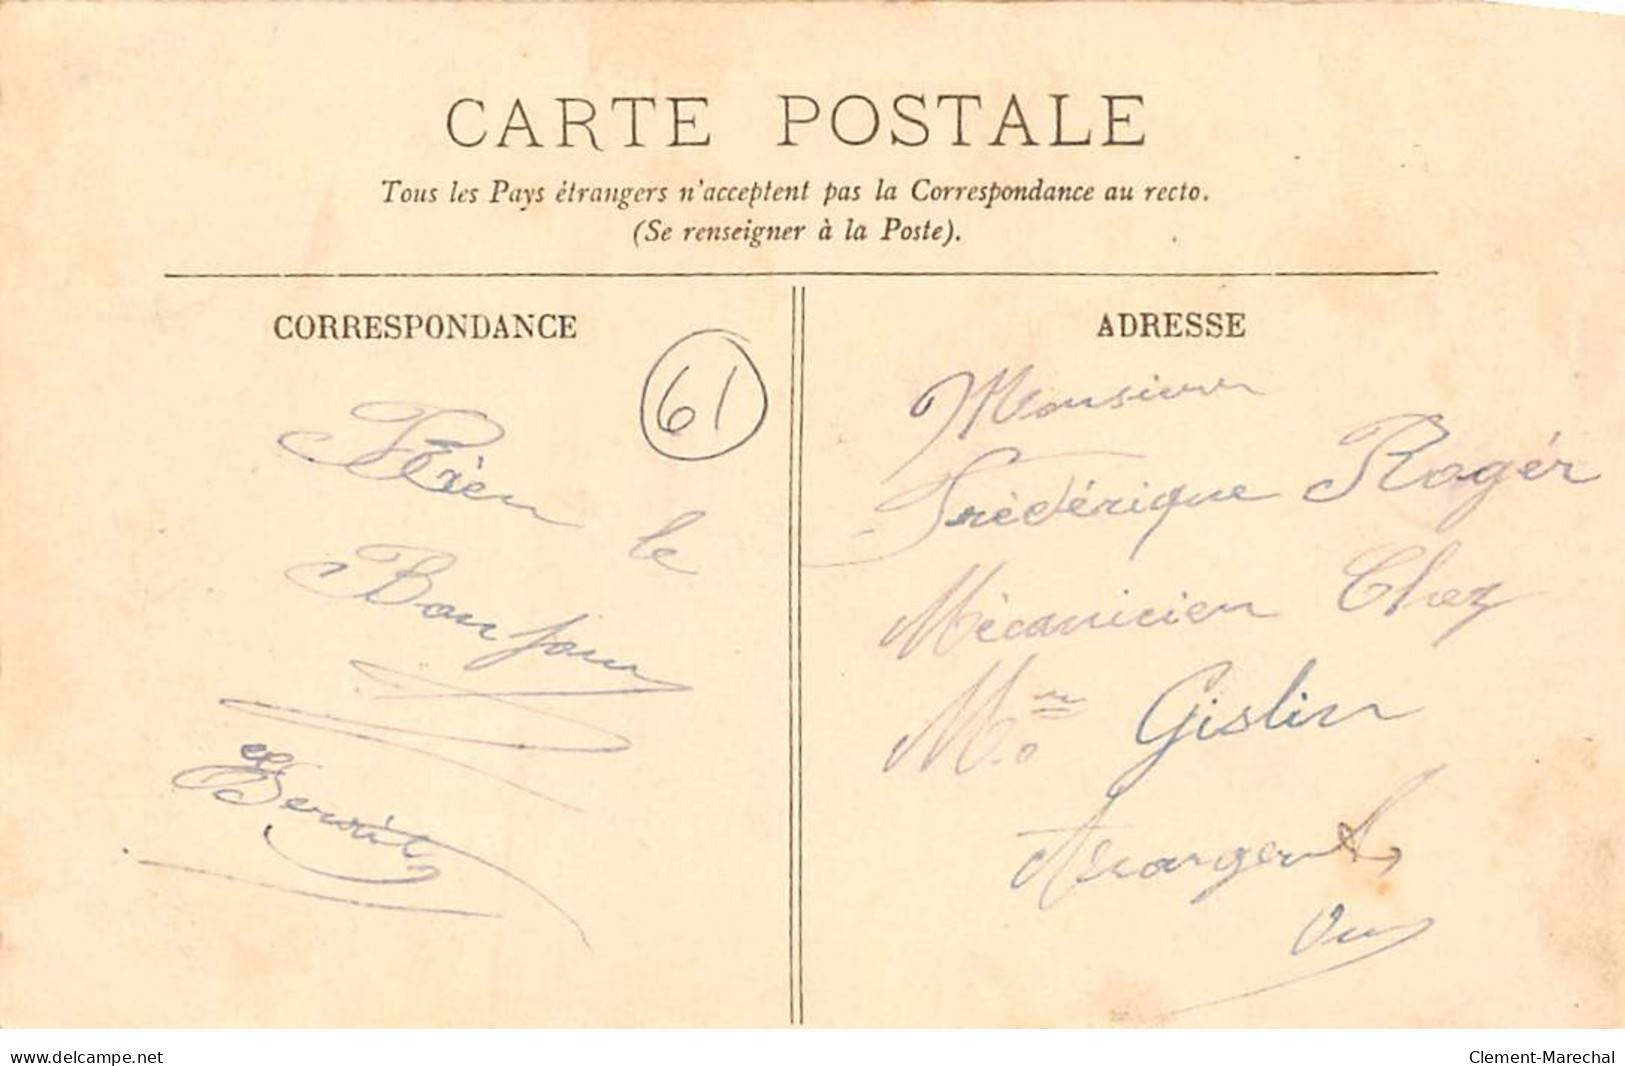 CARTE POSTALE
Tous les Pays étrangers n'acceptent pas la Correspondance au recto.
(Se renseigner à la Poste).
CORRESPONDANCE
61
Bien le
Bonjour
Benoit
ADRESSE
Monsieur
Frédérique Rogér
Mécanicien Chez
Mr Gislin
Argent
www.delcampe.net
Clement-Marechal